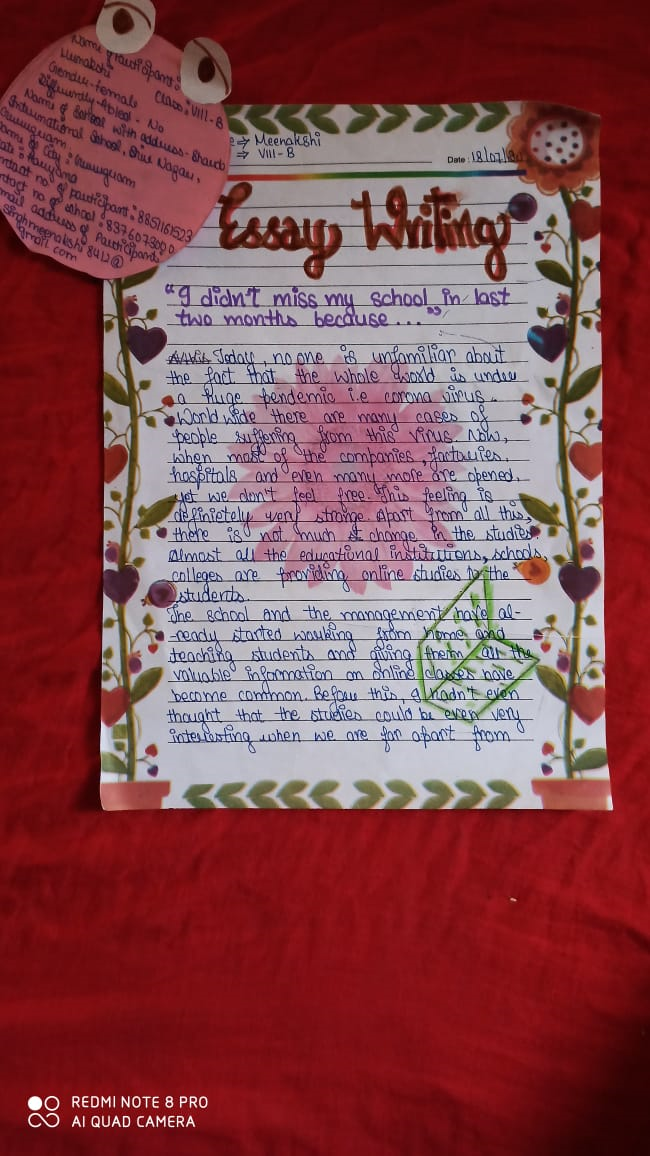 Name of participant:
Meenakshi
Class: VIII-B
Gender-Female
Differently Abled - No
Name of School with address-
International School,
Gurugram
Name of City: Gurugram
Haryana
contact no of participant:
contact no of school:
Email address of Participant:
singhmeenakshi8412@
gmail.com
e => Meenakshi
=> VIII-B
Date: 18/07/
Essay Writing
"I didn't miss my school in last
two months because..."
Today, no one is unfamiliar about
the fact that the whole world is under
a huge pendemic i.e corona virus.
World wide there are many cases of
people suffering from this virus Now,
when most of the companies, factories,
hospitals and even many more are opened,
yet we don't feel free. This feeling is
definietely very strange. Apart from all this,
there is not much change in the studies.
Almost all the educational institutions, schools,
colleges are providing online studies to the
students.
The school and the management have al-
-ready started working from home and
teaching students and giving them all the
valuable information on online classes have
become common. Before this, I hadn't even
thought that the studies could be even very
interesting when we are far apart from
REDMI NOTE 8 PRO
AI QUAD CAMERA